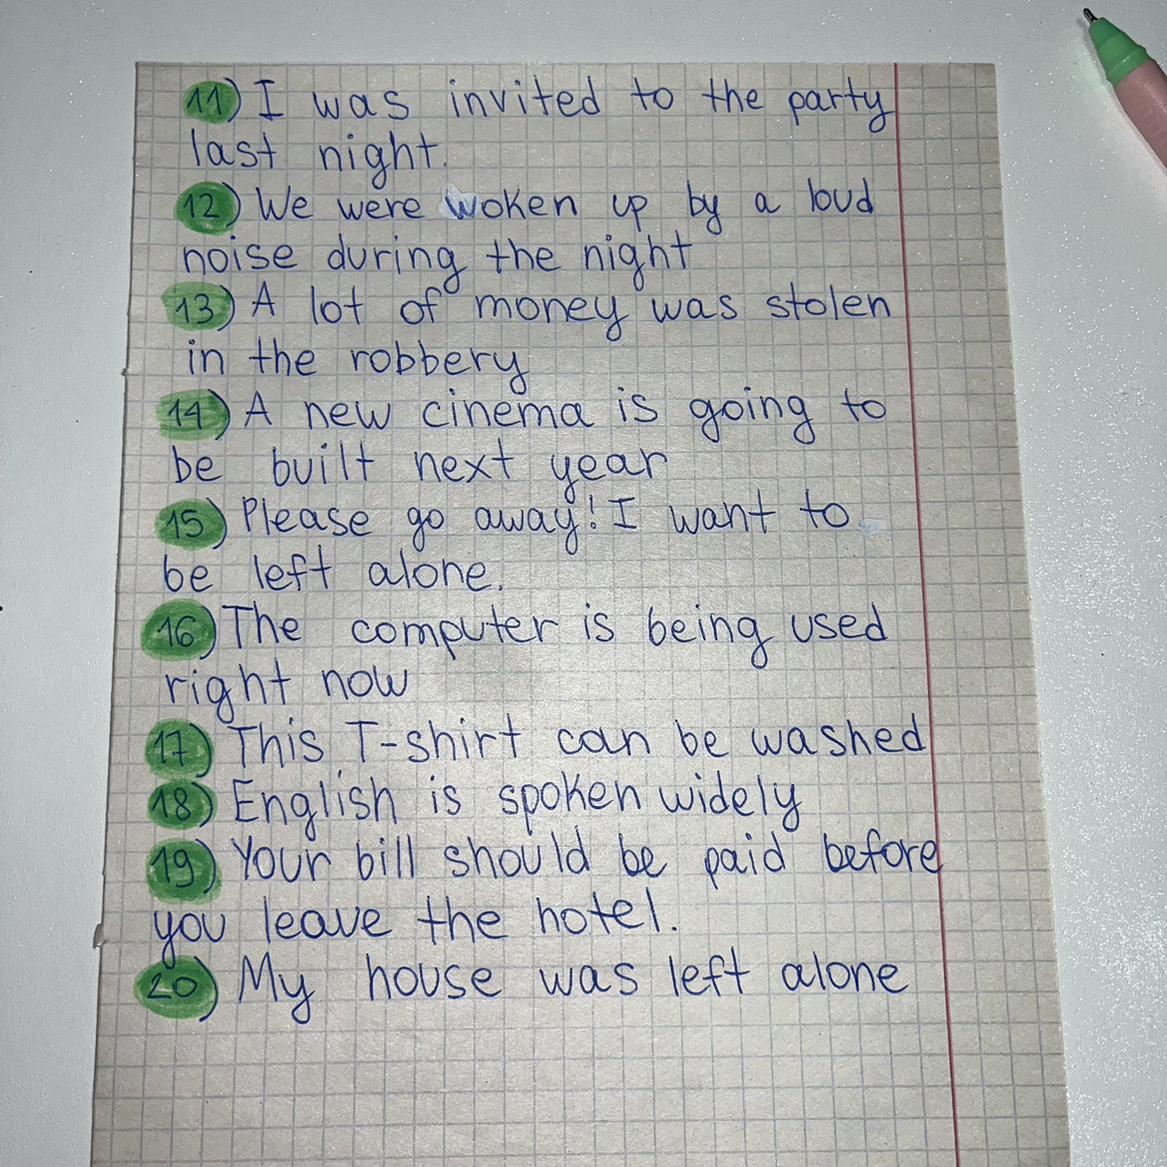 11) I was invited to the party
last night.
12) We were woken up by a loud
noise during the night
13) A lot of money was stolen
in the robbery
14) A new cinema is going to
be built next year
15) Please go away! I want to
be left alone.
16) The computer is being used
right now
17) This T-shirt can be washed
18) English is spoken widely
19) Your bill should be paid before
you leave the hotel.
20) My house was left alone